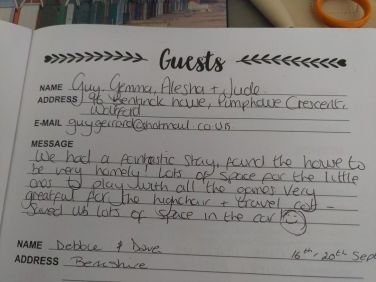 Guests
NAME Guy, Gemma, Alesha + Jude
ADDRESS 96 Bentinck house, Pumphouse Crescent,
Watford
E-MAIL guygerrard@hotmail.co.uk
MESSAGE
We had a fantastic stay, found the house to
be very homely. Lots of space for the little
ones to play with all the games. Very
greatful for the highchair + travel cot -
Saved us lots of space in the car
NAME Debbie & Dave 16th - 20th Sept
ADDRESS Berkshire